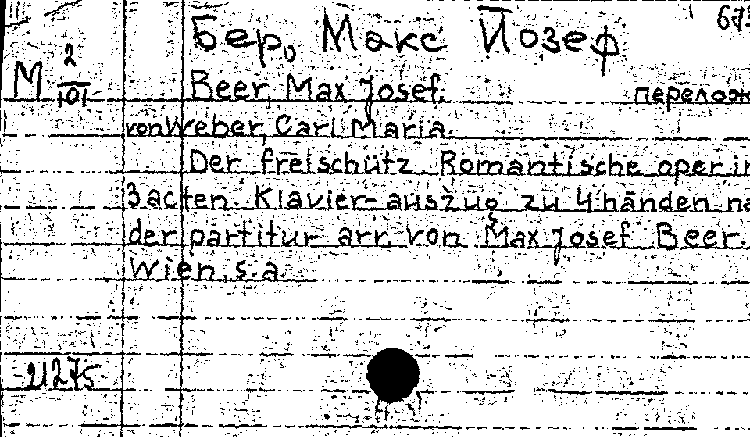 Бер, Макс Йозеф
М 2/101
Beer, Max Josef. перелож
von Weber, Carl Maria.
Der freischütz. Romantische oper in
3 acten. Klavier-auszug zu 4 händen na
der partitur arr. von Max Josef Beer.
Wien, s.a.